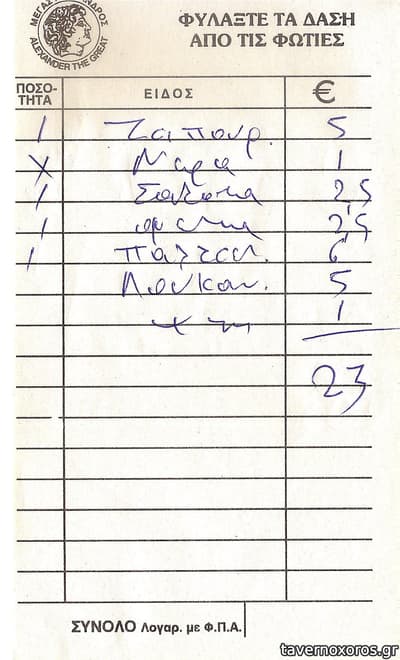 ΜΕΓΑΣ ΑΛΕΞΑΝΔΡΟΣ
ALEXANDER THE GREAT
ΦΥΛΑΞΤΕ ΤΑ ΔΑΣΗ
ΑΠΟ ΤΙΣ ΦΩΤΙΕΣ
ΠΟΣΟ-
ΤΗΤΑ ΕΙΔΟΣ €
1 Τσιπουρ. 5
Χ Νερο 1
1 Σαλατα 2,5
1 2,5
1 Παϊδακ. 6
Λουκαν. 5
1
23
ΣΥΝΟΛΟ Λογαρ. με Φ.Π.Α.
tavernoxoros.gr